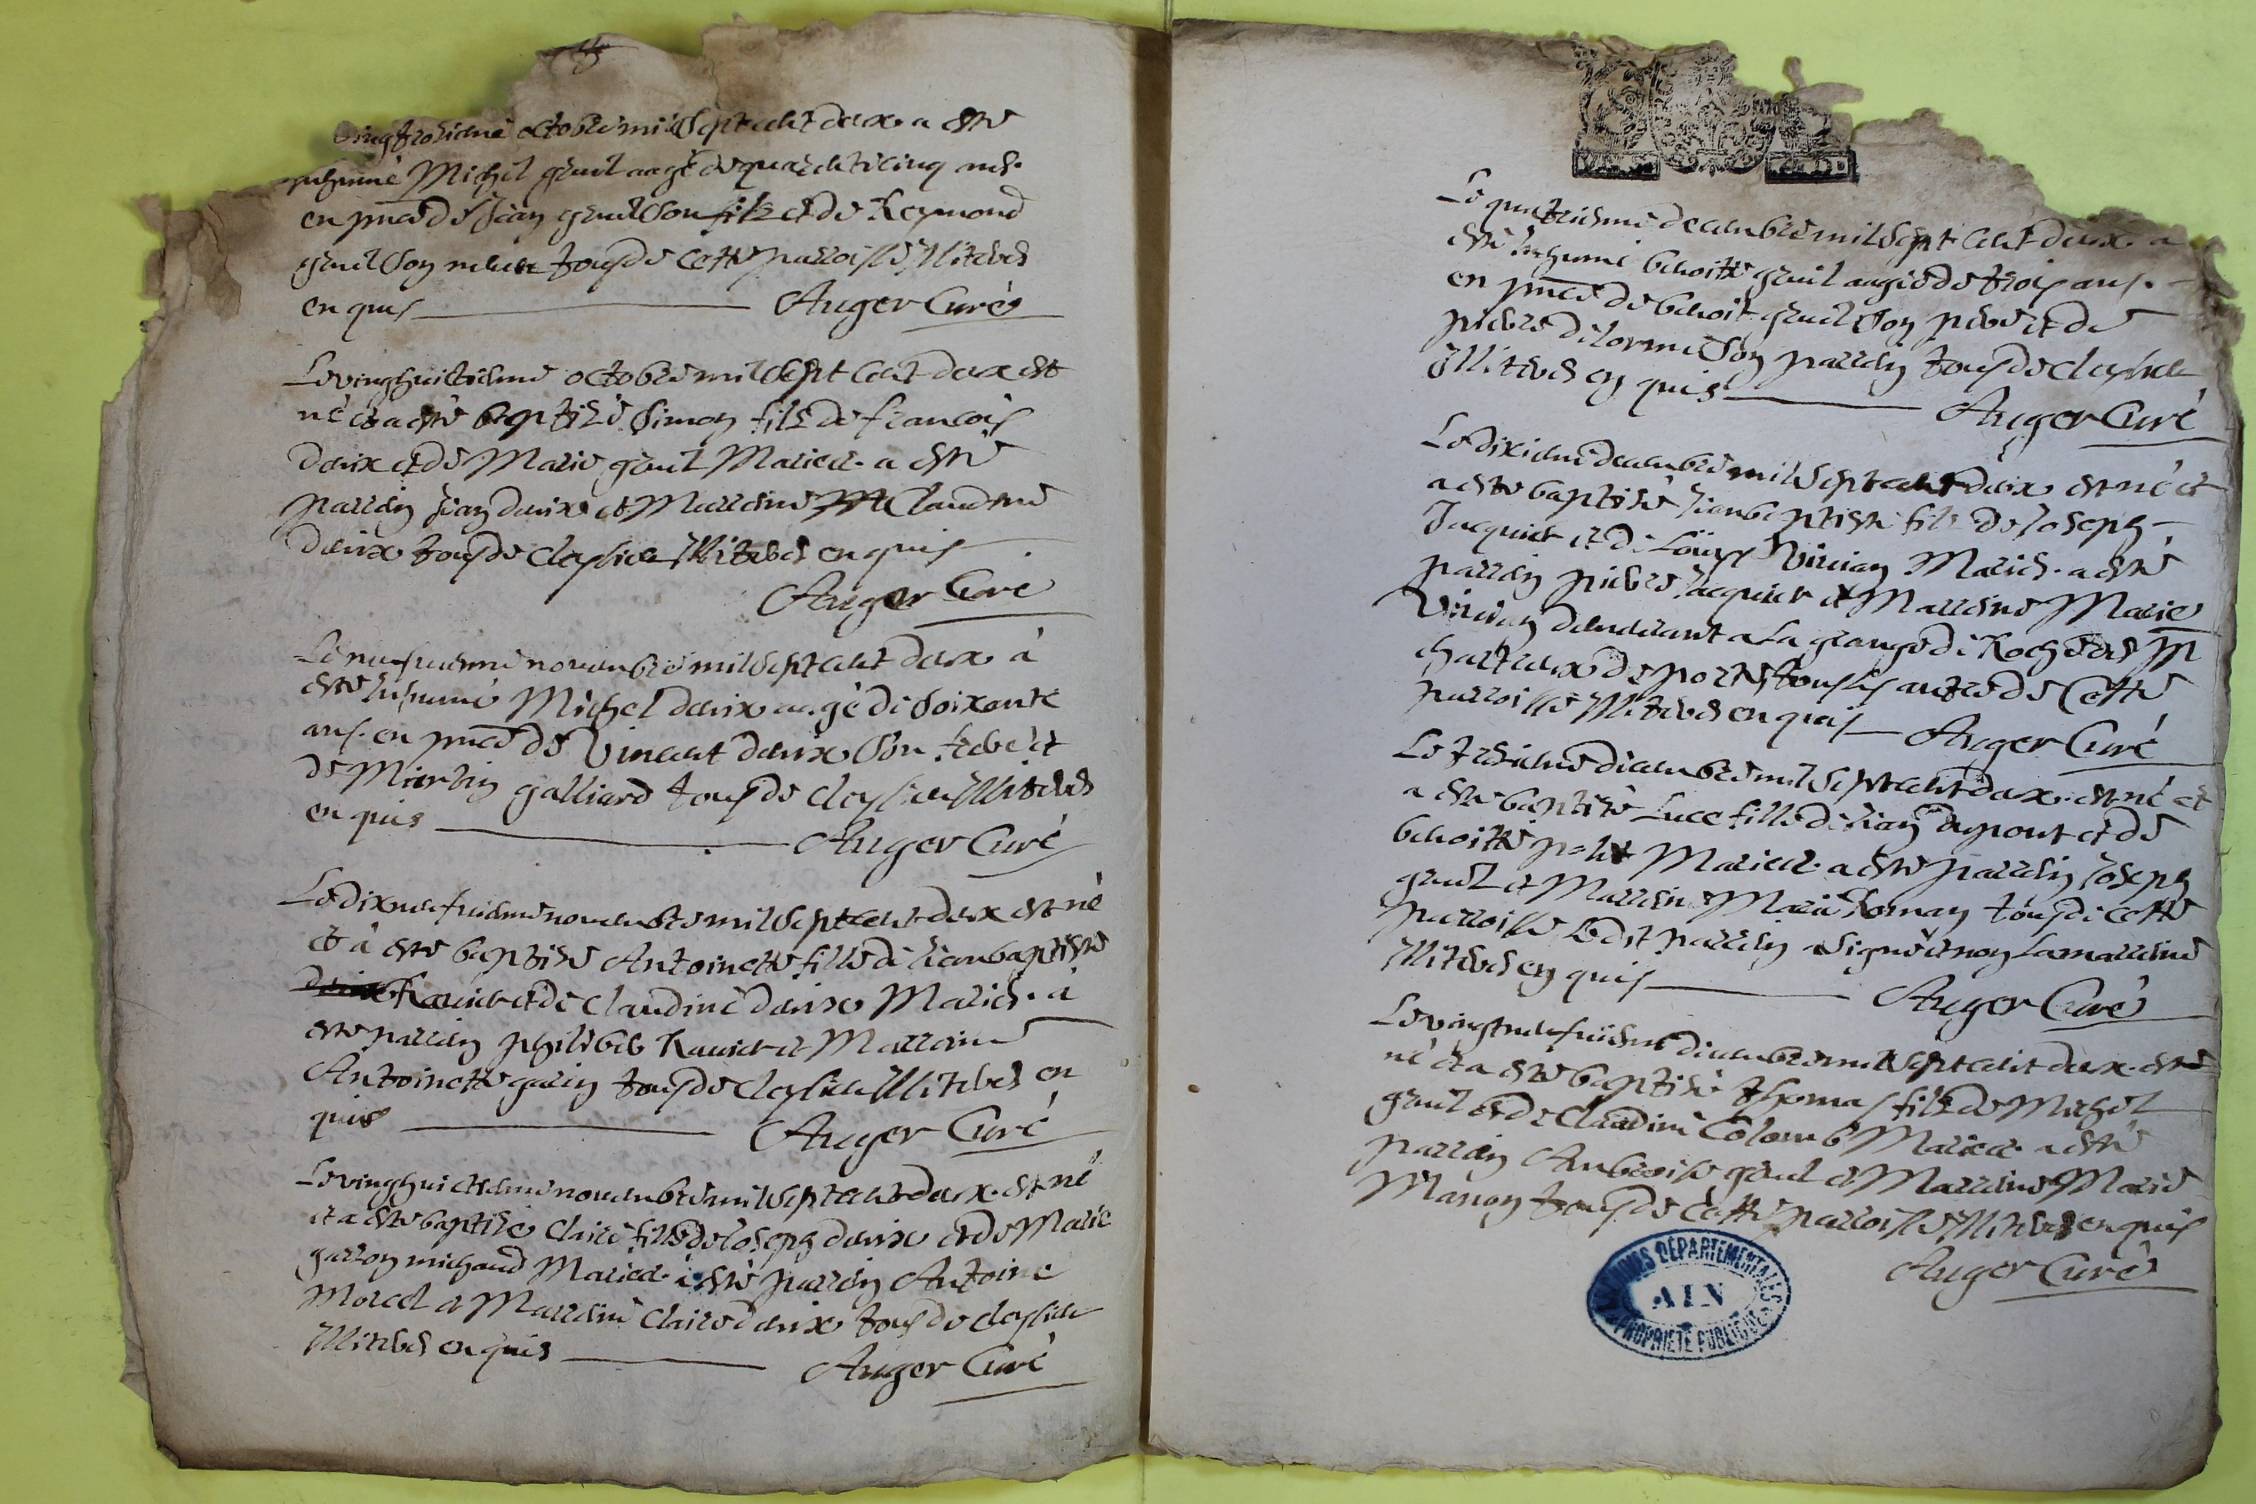 vingtroisieme octobre mil sept cent deux a esté
inhumé Michel gruel aagé de quarente cinq ans.
en pnce de Jean gruel son fils et de Reymond
gruel son tous de cette parroisse illiteres
enquis Auger Curé
Le vinghuictieme octobre mil sept cent deux est
né et a esté baptizé Simon fils de francois
deux et de Marie gruel Mariés. a esté
parrein Jean et Marreine Claudine
tous de illiteres enquis
Auger Curé
Le neufvieme novembre mil sept cent deux à
esté inhumé Michel aagé de soixante
ans. en pnce de Vincent son frere et
de Martin galliard tous de illiteres
enquis Auger Curé
Le dixneufvieme novembre mil sept cent deux est né
et à esté baptisé Antoinette fille de Jean baptiste
Ravier et de Claudine Mariés. à
esté parrein philibert Ravier et Marreine
Antoinette tous de illiteres en
quis Auger Curé
Le vinghuictieme novembre mil sept cent deux. est né
et a esté baptisé Claire fille de Joseph et de Marie
michaud Mariés. à esté parrein Antoine
Morel et Marreine Claire tous de
illiteres enquis Auger Curé
Le quatrieme decembre mil sept cent deux a
esté inhumé benoitte gruel aagée de trois ans.
en pnce de benoit gruel son pere et de
pierre son parrein tous de
illiteres enquis Auger Curé
Le dixieme decembre mil sept cent deux est né et
a esté baptisé Jean baptiste fils de Joseph
Jacquier et de Mariés. a esté
parrein pierre Jacquier et Marreine Marie
demeurant a La grange de Roche des
chartreux de portes tous les autres de Cette
parroisse illiteres enquis Auger Curé
Le treisieme decembre mil sept cent deux. est né et
a esté baptisé Luce fille de Jean dupont et de
benoitte Mariés. a esté parrein Joseph
gruel et Marreine Marie tous de cette
parroisse Ledit parrein a signé et non La marreine
illiteres enquis Auger Curé
Le vingtneufvieme decembre mil sept cent deux. est
né et a esté baptisé thomas fils de Michel
gruel et de Claudine Colomb Mariés a esté
parrein Ambroise gruel et Marreine Marie
Manon tous de cette parroisse illiteres enquis
Auger Curé
ARCHIVES DÉPARTEMENTALES
AIN
PROPRIÉTÉ PUBLIQUE